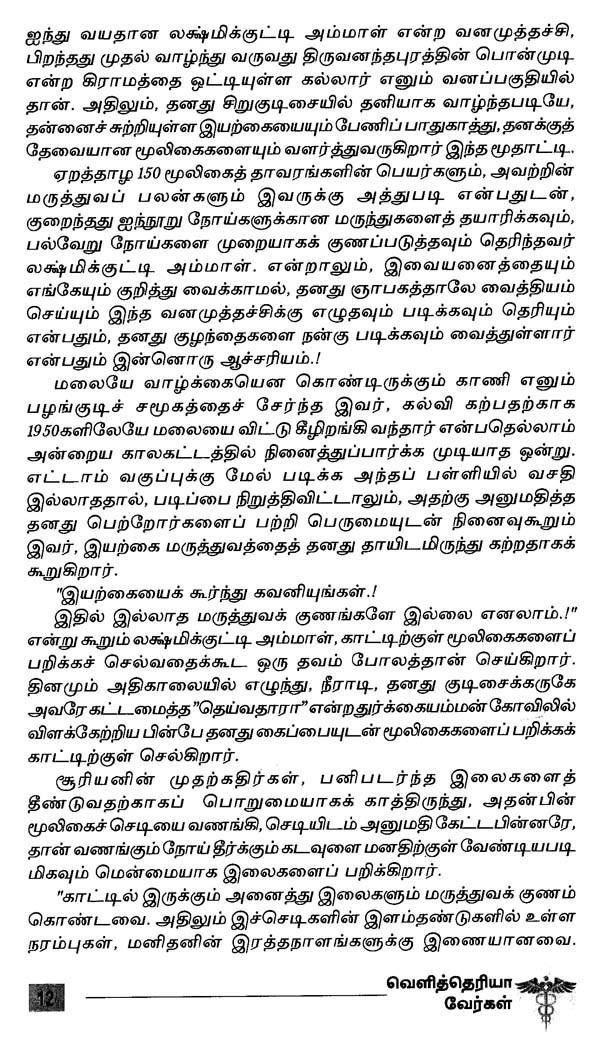 ஐந்து வயதான லக்ஷ்மிக்குட்டி அம்மாள் என்ற வனமுத்தச்சி,
பிறந்தது முதல் வாழ்ந்து வருவது திருவனந்தபுரத்தின் பொன்முடி
என்ற கிராமத்தை ஒட்டியுள்ள கல்லார் எனும் வனப்பகுதியில்
தான். அதிலும், தனது சிறுகுடிசையில் தனியாக வாழ்ந்தபடியே,
தன்னைச் சுற்றியுள்ள இயற்கையையும் பேணிப் பாதுகாத்து, தனக்குத்
தேவையான மூலிகைகளையும் வளர்த்துவருகிறார் இந்த மூதாட்டி.
ஏறத்தாழ 150 மூலிகைத் தாவரங்களின் பெயர்களும், அவற்றின்
மருத்துவப் பலன்களும் இவருக்கு அத்துபடி என்பதுடன்,
குறைந்தது ஐந்நூறு நோய்களுக்கான மருந்துகளைத் தயாரிக்கவும்,
பல்வேறு நோய்களை முறையாகக் குணப்படுத்தவும் தெரிந்தவர்
லக்ஷ்மிக்குட்டி அம்மாள். என்றாலும், இவையனைத்தையும்
எங்கேயும் குறித்து வைக்காமல், தனது ஞாபகத்தாலே வைத்தியம்
செய்யும் இந்த வனமுத்தச்சிக்கு எழுதவும் படிக்கவும் தெரியும்
என்பதும், தனது குழந்தைகளை நன்கு படிக்கவும் வைத்துள்ளார்
என்பதும் இன்னொரு ஆச்சரியம்.!
மலையே வாழ்க்கையென கொண்டிருக்கும் காணி எனும்
பழங்குடிச் சமூகத்தைச் சேர்ந்த இவர், கல்வி கற்பதற்காக
1950களிலேயே மலையை விட்டு கீழிறங்கி வந்தார் என்பதெல்லாம்
அன்றைய காலகட்டத்தில் நினைத்துப்பார்க்க முடியாத ஒன்று.
எட்டாம் வகுப்புக்கு மேல் படிக்க அந்தப் பள்ளியில் வசதி
இல்லாததால், படிப்பை நிறுத்திவிட்டாலும், அதற்கு அனுமதித்த
தனது பெற்றோர்களைப் பற்றி பெருமையுடன் நினைவுகூறும்
இவர், இயற்கை மருத்துவத்தைத் தனது தாயிடமிருந்து கற்றதாகக்
கூறுகிறார்.
"இயற்கையைக் கூர்ந்து கவனியுங்கள்.!
இதில் இல்லாத மருத்துவக் குணங்களே இல்லை எனலாம்.!"
என்று கூறும் லக்ஷ்மிக்குட்டி அம்மாள், காட்டிற்குள் மூலிகைகளைப்
பறிக்கச் செல்வதைக்கூட ஒரு தவம் போலத்தான் செய்கிறார்.
தினமும் அதிகாலையில் எழுந்து, நீராடி, தனது குடிசைக்கருகே
அவரே கட்டமைத்த "தெய்வதாரா" என்ற துர்க்கையம்மன் கோவிலில்
விளக்கேற்றிய பின்பே தனது கைப்பையுடன் மூலிகைகளைப் பறிக்கக்
காட்டிற்குள் செல்கிறார்.
சூரியனின் முதற்கதிர்கள், பனிபடர்ந்த இலைகளைத்
தீண்டுவதற்காகப் பொறுமையாகக் காத்திருந்து, அதன்பின்
மூலிகைச் செடியை வணங்கி, செடியிடம் அனுமதி கேட்டபின்னரே,
தான் வணங்கும் நோய் தீர்க்கும் கடவுளை மனதிற்குள் வேண்டியபடி
மிகவும் மென்மையாக இலைகளைப் பறிக்கிறார்.
"காட்டில் இருக்கும் அனைத்து இலைகளும் மருத்துவக் குணம்
கொண்டவை. அதிலும் இச்செடிகளின் இளம்தண்டுகளில் உள்ள
நரம்புகள், மனிதனின் இரத்தநாளங்களுக்கு இணையானவை.
12
வெளித்தெரியா
வேர்கள்